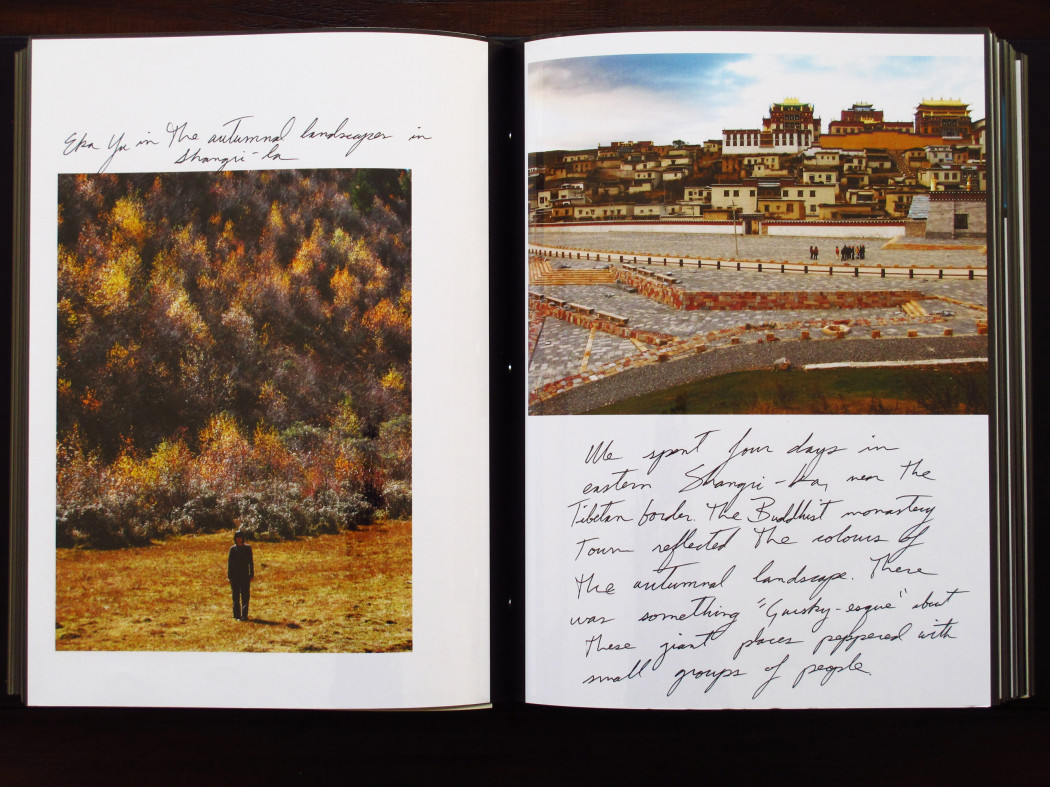 Eka Yu in the autumnal landscapes in
Shangri-la
We spent four days in
eastern Shangri-La, near the
Tibetan border. The Buddhist monastery
Town reflected the colours of
the autumnal landscape. There
was something "Gursky-esque" about
these giant places peppered with
small groups of people.